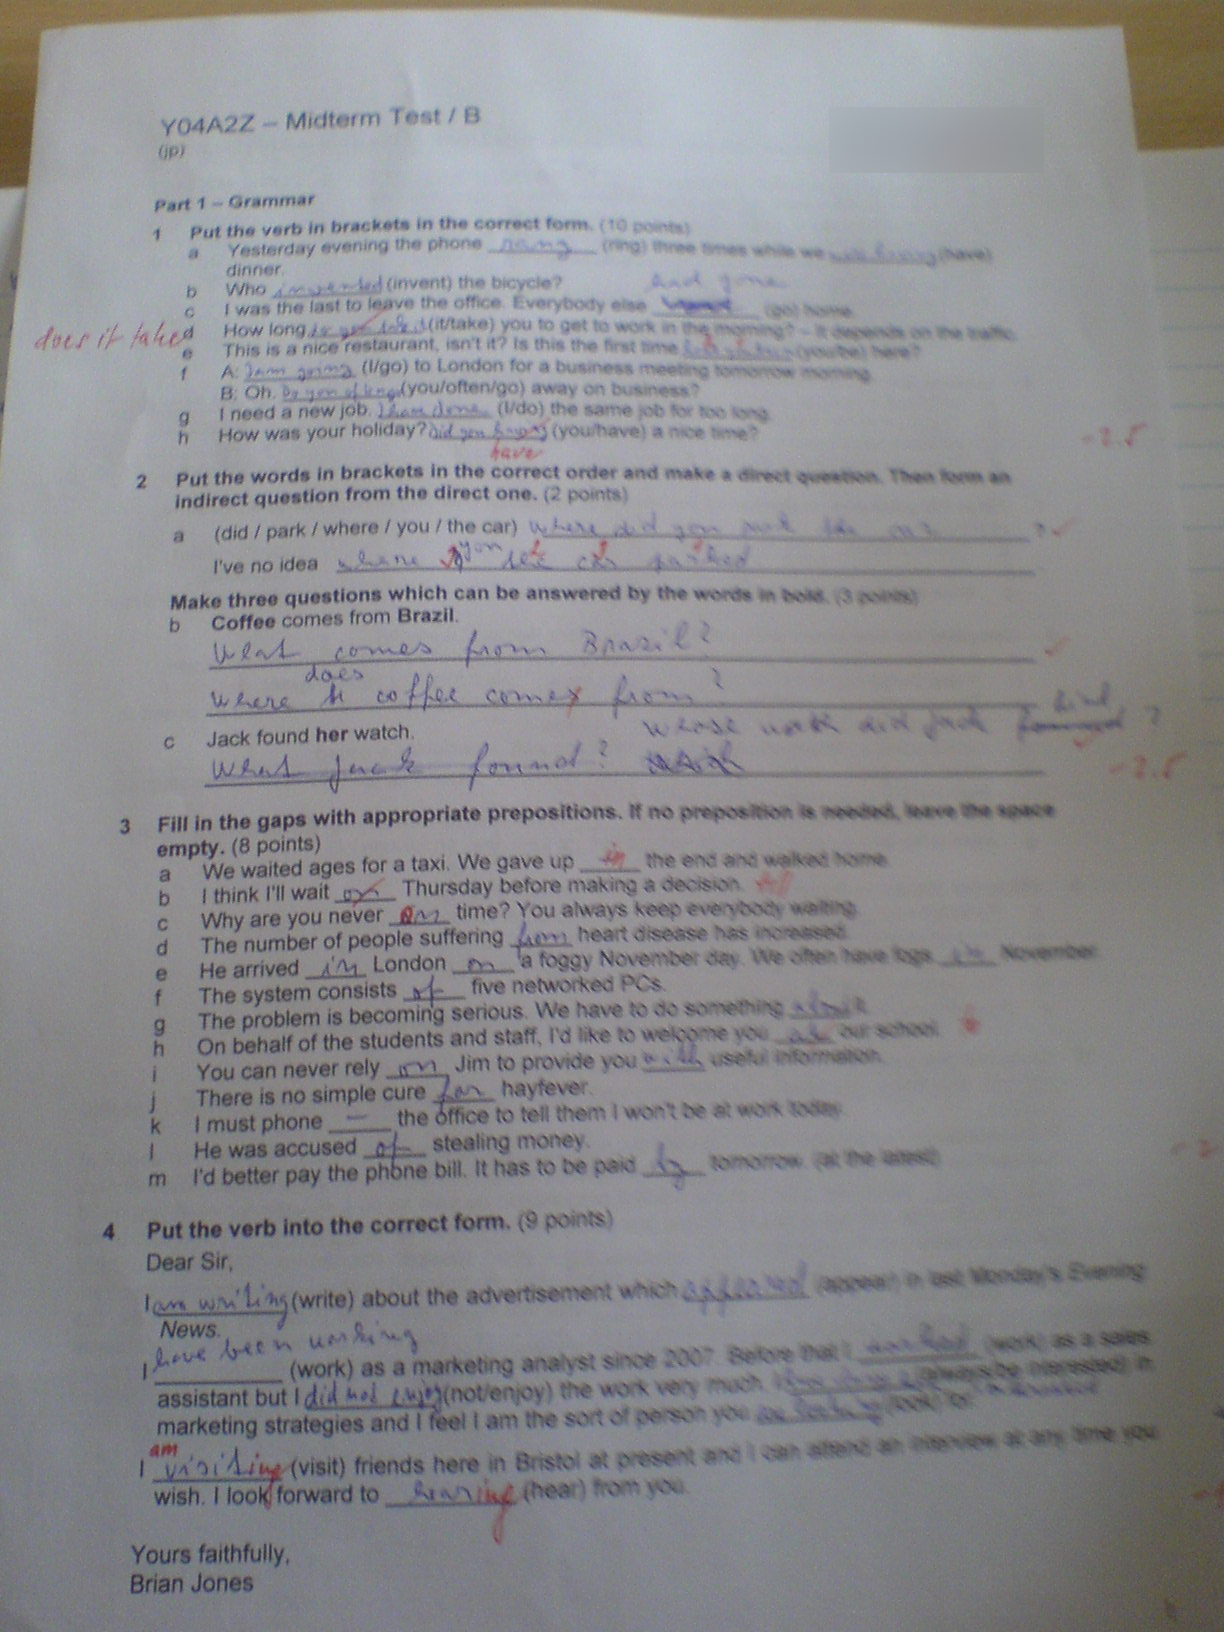 Y04A2Z – Midterm Test / B
(jp)
Part 1 – Grammar
1 Put the verb in brackets in the correct form. (10 points)
a Yesterday evening the phone rang (ring) three times while we (have)
dinner.
b Who invented (invent) the bicycle?
had gone
c I was the last to leave the office. Everybody else (go) home.
does it take
d How long (it/take) you to get to work in the morning? – It depends on the traffic.
e This is a nice restaurant, isn't it? Is this the first time (you/be) here?
f A: I am going (I/go) to London for a business meeting tomorrow morning.
B: Oh. Do you often go (you/often/go) away on business?
g I need a new job. I have done (I/do) the same job for too long.
h How was your holiday? Did you having (you/have) a nice time?
have
-2.5
2 Put the words in brackets in the correct order and make a direct question. Then form an
indirect question from the direct one. (2 points)
a (did / park / where / you / the car) Where did you park the car ?
I've no idea where you the car parked
Make three questions which can be answered by the words in bold. (3 points)
b Coffee comes from Brazil.
What comes from Brazil?
does
Where coffee comes from?
find
whose watch did Jack found ?
c Jack found her watch.
What Jack found?
3 Fill in the gaps with appropriate prepositions. If no preposition is needed, leave the space
empty. (8 points)
a We waited ages for a taxi. We gave up in the end and walked home.
b I think I'll wait on Thursday before making a decision. till
c Why are you never on time? You always keep everybody waiting.
d The number of people suffering from heart disease has increased.
e He arrived in London on a foggy November day. We often have fogs in November.
f The system consists of five networked PCs.
g The problem is becoming serious. We have to do something about it.
h On behalf of the students and staff, I'd like to welcome you at our school.
i You can never rely on Jim to provide you with useful information.
j There is no simple cure for hayfever.
k I must phone — the office to tell them I won't be at work today.
l He was accused of stealing money.
m I'd better pay the phone bill. It has to be paid by tomorrow. (at the latest)
4 Put the verb into the correct form. (9 points)
Dear Sir,
I am writing (write) about the advertisement which appeared (appear) in last Monday's Evening
News.
have been working
I (work) as a marketing analyst since 2007. Before that I worked (work) as a sales
assistant but I did not enjoy (not/enjoy) the work very much. I (always/be interested) in
marketing strategies and I feel I am the sort of person you are looking (look) for.
am
I visiting (visit) friends here in Bristol at present and I can attend an interview at any time you
wish. I look forward to hearing (hear) from you.
Yours faithfully,
Brian Jones